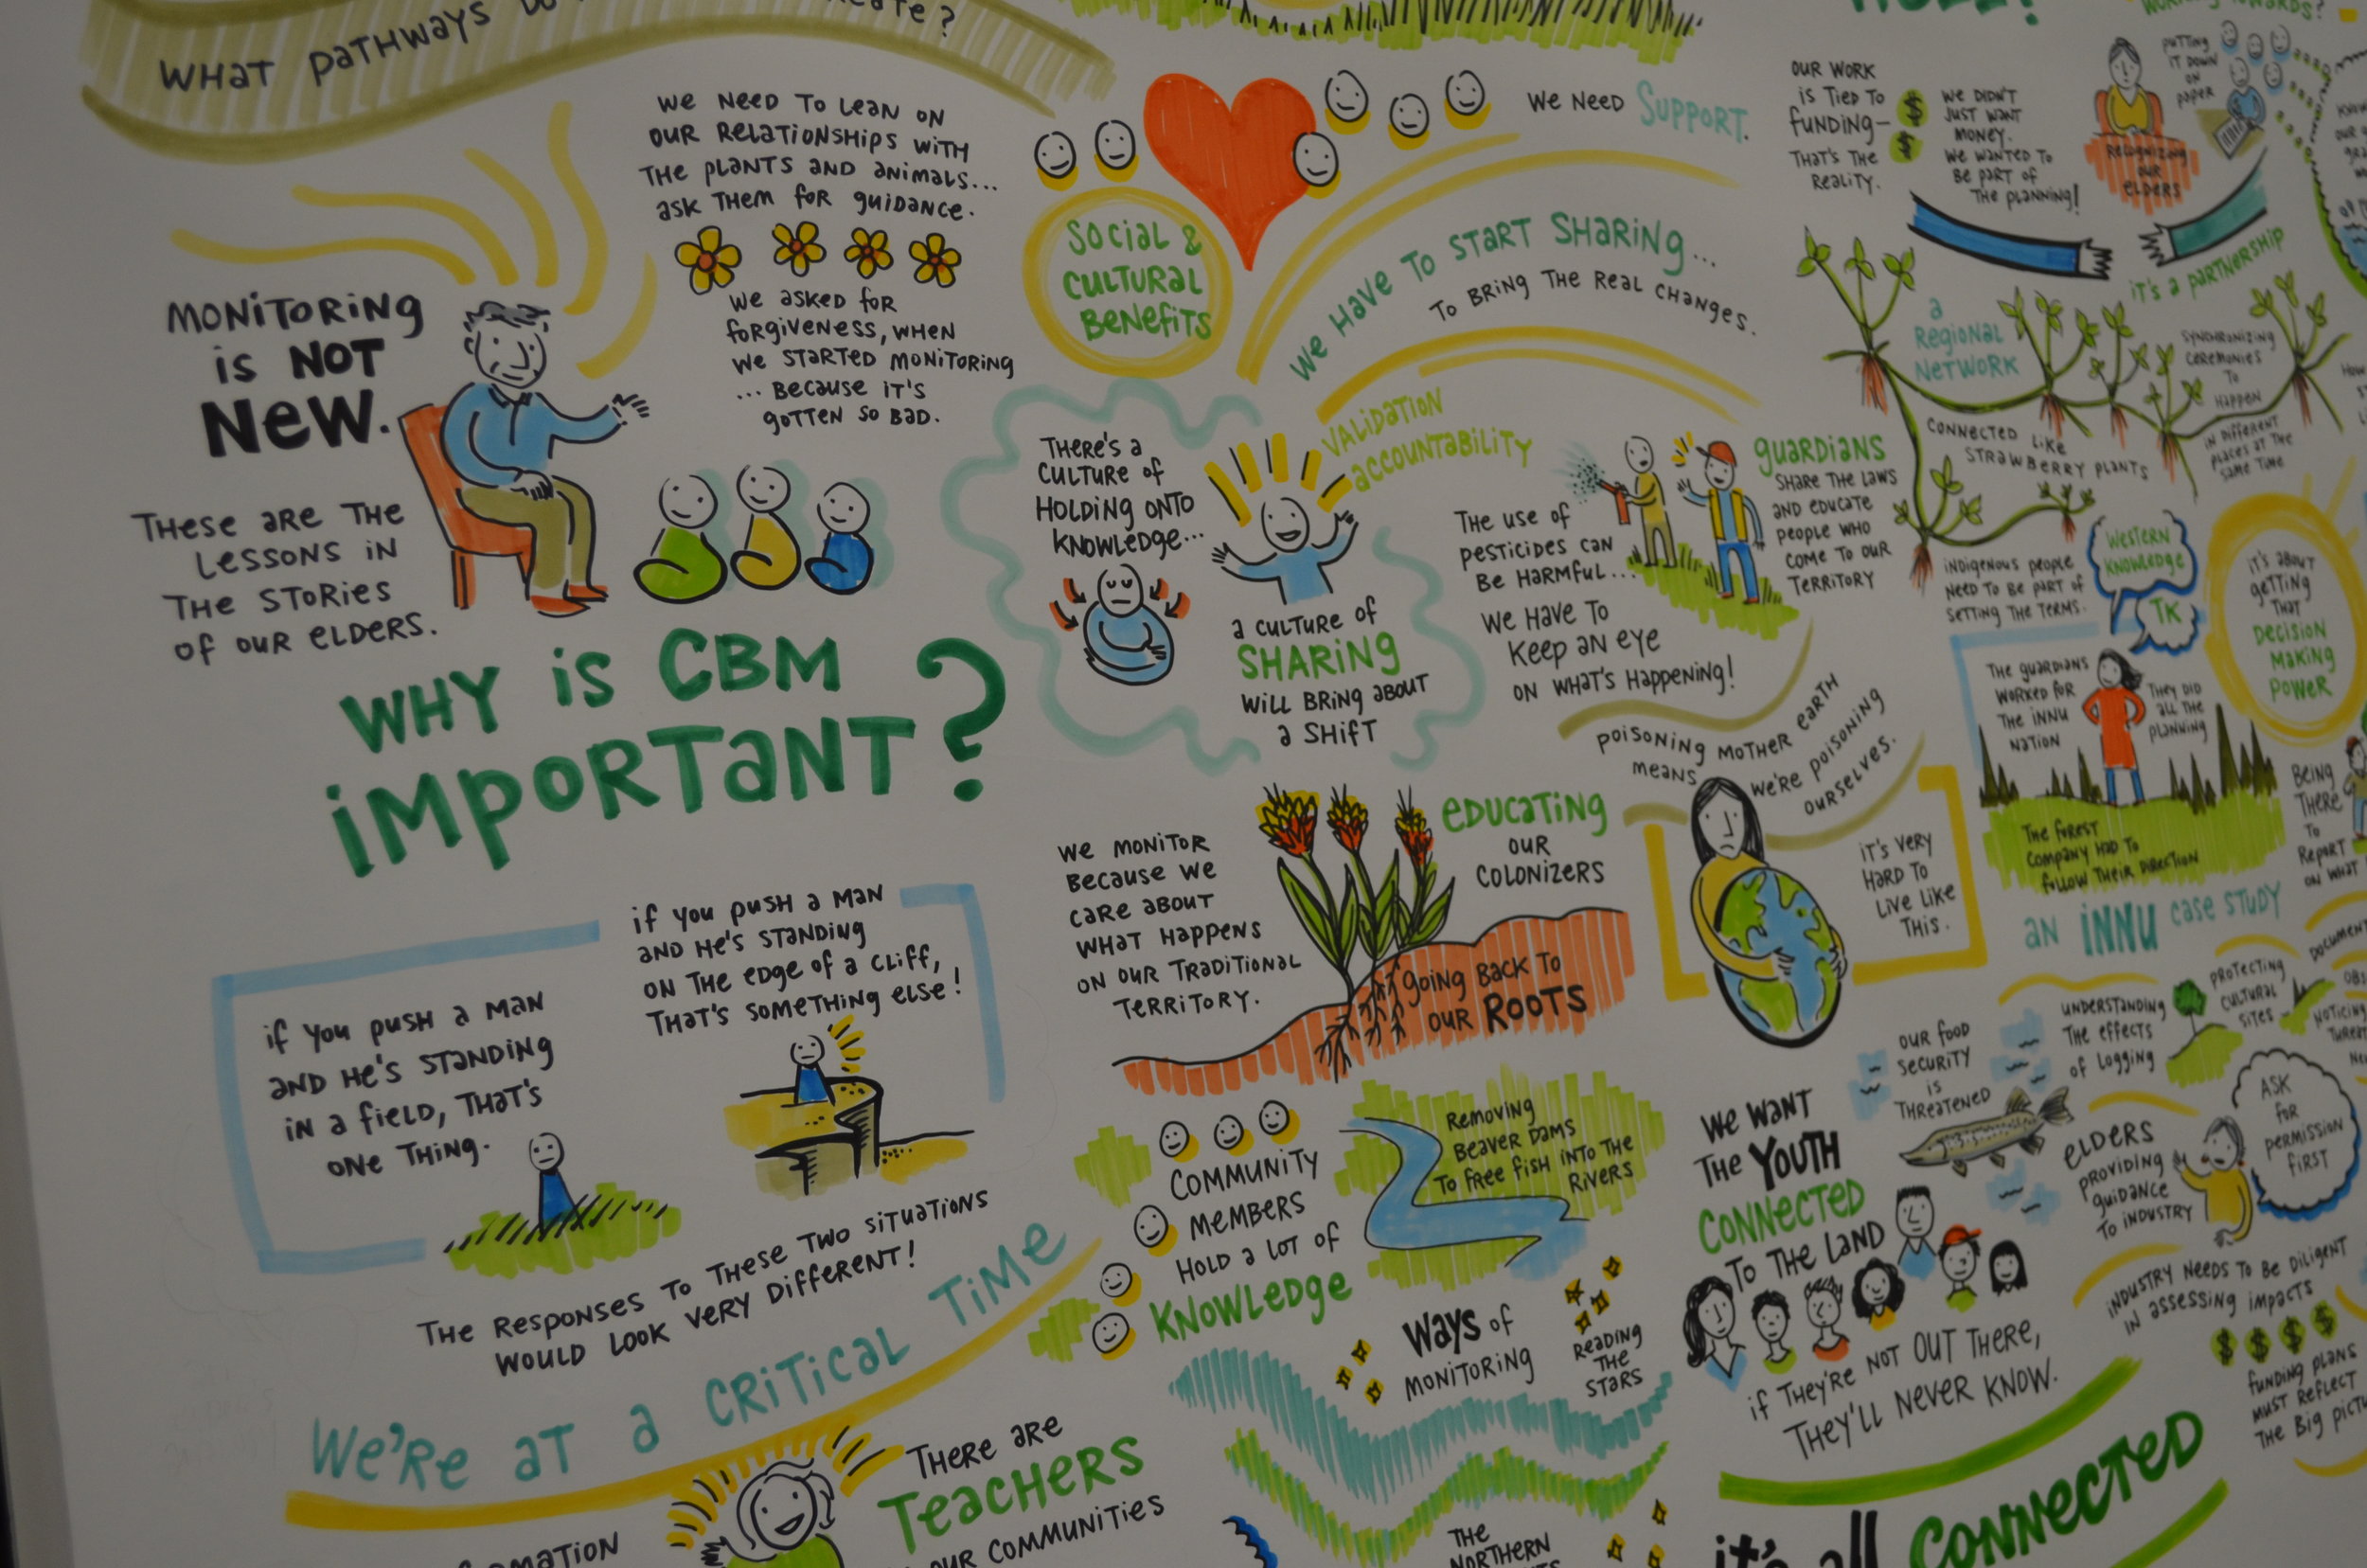 WHAT PATHWAYS DO
?
WE NEED TO LEAN ON
OUR RELATIONSHIPS WITH
THE PLANTS AND ANIMALS...
ASK THEM FOR GUIDANCE.
WE ASKED FOR
FORGIVENESS, WHEN
WE STARTED MONITORING
... BECAUSE IT'S
GOTTEN SO BAD.
MONITORING
IS NOT
NEW.
THESE ARE THE
LESSONS IN
THE STORIES
OF OUR ELDERS.
WHY IS CBM
IMPORTANT?
IF YOU PUSH A MAN
AND HE'S STANDING
IN A FIELD, THAT'S
ONE THING.
IF YOU PUSH A MAN
AND HE'S STANDING
ON THE EDGE OF A CLIFF,
THAT'S SOMETHING ELSE!
THE RESPONSES TO THESE TWO SITUATIONS
WOULD LOOK VERY DIFFERENT!
WE'RE AT A CRITICAL TIME
THERE ARE
TEACHERS
OUR COMMUNITIES
SOCIAL &
CULTURAL
BENEFITS
WE NEED SUPPORT.
WE HAVE TO START SHARING...
TO BRING THE REAL CHANGES.
THERE'S A
CULTURE OF
HOLDING ONTO
KNOWLEDGE...
VALIDATION
ACCOUNTABILITY
A CULTURE OF
SHARING
WILL BRING ABOUT
A SHIFT
THE USE OF
PESTICIDES CAN
BE HARMFUL...
WE HAVE TO
KEEP AN EYE
ON WHAT'S HAPPENING!
GUARDIANS
SHARE THE LAWS
AND EDUCATE
PEOPLE WHO
COME TO OUR
TERRITORY
POISONING MOTHER EARTH
MEANS WE'RE POISONING
OURSELVES.
IT'S VERY
HARD TO
LIVE LIKE
THIS.
WE MONITOR
BECAUSE WE
CARE ABOUT
WHAT HAPPENS
ON OUR TRADITIONAL
TERRITORY.
EDUCATING
OUR
COLONIZERS
GOING BACK TO
OUR ROOTS
COMMUNITY
MEMBERS
HOLD A LOT OF
KNOWLEDGE
REMOVING
BEAVER DAMS
TO FREE FISH INTO THE
RIVERS
WAYS OF
MONITORING
READING
THE
STARS
THE
NORTHERN
OUR WORK
IS TIED TO
FUNDING—
THAT'S THE
REALITY.
$
$
WE DIDN'T
JUST WANT
MONEY.
WE WANTED TO
BE PART OF
THE PLANNING!
RECOGNIZING
OUR
ELDERS
PUTTING
IT DOWN
ON
PAPER
IT'S A PARTNERSHIP
A
REGIONAL
NETWORK
CONNECTED LIKE
STRAWBERRY PLANTS
SYNCHRONIZING
CEREMONIES
TO
HAPPEN
IN DIFFERENT
PLACES AT THE
SAME TIME
INDIGENOUS PEOPLE
NEED TO BE PART OF
SETTING THE TERMS.
WESTERN
KNOWLEDGE
TK
IT'S ABOUT
GETTING
THAT
DECISION
MAKING
POWER
THE GUARDIANS
WORKED FOR
THE INNU
NATION
THEY DID
ALL THE
PLANNING
THE FOREST
COMPANY HAD TO
FOLLOW THEIR DIRECTION
AN INNU CASE STUDY
BEING
THERE
TO
REPORT
ON WHAT
OUR FOOD
SECURITY
IS
THREATENED
UNDERSTANDING
THE EFFECTS
OF LOGGING
PROTECTING
CULTURAL
SITES
WE WANT
THE YOUTH
CONNECTED
TO THE LAND
IF THEY'RE NOT OUT THERE,
THEY'LL NEVER KNOW.
ELDERS
PROVIDING
GUIDANCE
TO INDUSTRY
ASK
FOR
PERMISSION
FIRST
INDUSTRY NEEDS TO BE DILIGENT
IN ASSESSING IMPACTS
$ $ $ $
FUNDING PLANS
MUST REFLECT
THE BIG
IT'S ALL CONNECTED